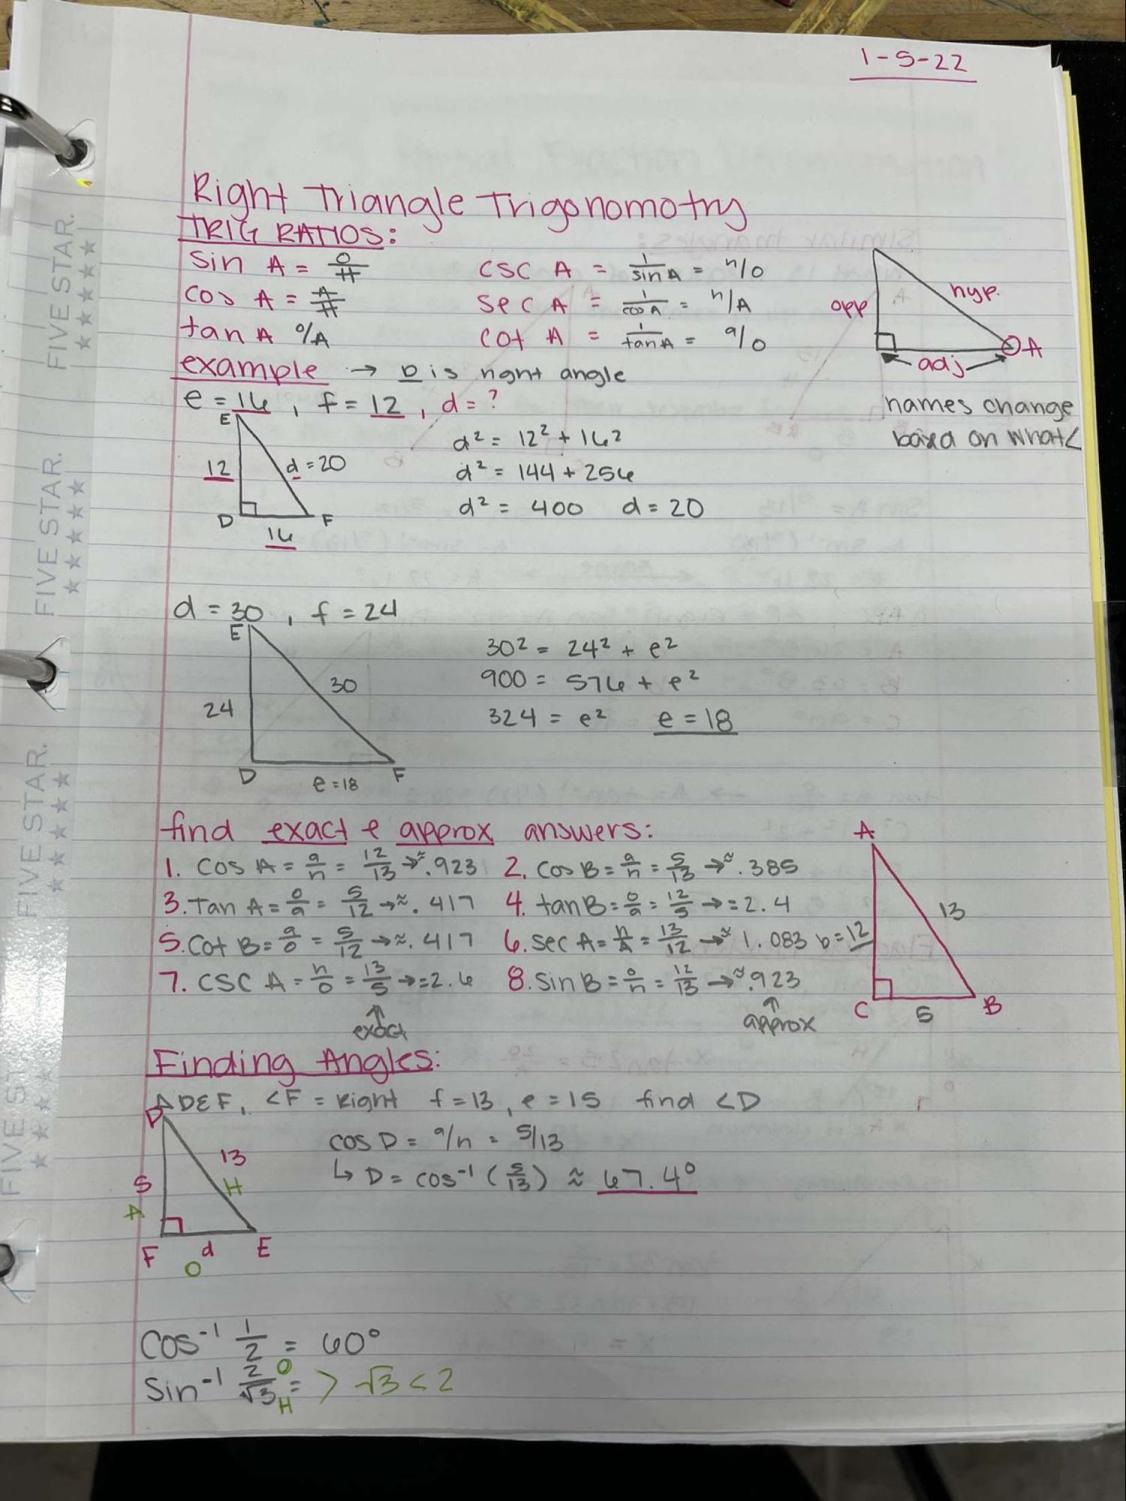 1-5-22
Right Triangle Trigonomotry
TRIG RATIOS:
sin A = O/H csc A = 1/sin A = h/o
cos A = A/H sec A = 1/cos A = h/A
tan A O/A cot A = 1/tan A = a/o
opp hyp. A
adj
names change
based on what <
example → D is right angle
e = 16, f = 12, d = ?
E
12 d = 20
D F
16
d² = 12² + 16²
d² = 144 + 256
d² = 400 d = 20
d = 30, f = 24
E
24 30
D F
e = 18
30² = 24² + e²
900 = 576 + e²
324 = e² e = 18
find exact & approx answers:
1. Cos A = a/h = 12/13 →≈ .923 2. Cos B = a/h = 5/13 →≈ .385
3. Tan A = o/a = 5/12 →≈ .417 4. tan B = o/a = 12/5 → = 2.4
5. Cot B = a/o = 5/12 →≈ .417 6. sec A = h/A = 13/12 →≈ 1.083
7. CSC A = h/o = 13/5 → = 2.6 8. Sin B = o/h = 12/13 →≈ .923
exact approx
A
13
b = 12
C 5 B
Finding Angles:
△DEF, <F = Right f = 13, e = 15 find <D
cos D = a/h = 5/13
↳ D = cos⁻¹ (5/13) ≈ 67.4°
D
13
5 H
A
F d E
O
Cos⁻¹ 1/2 = 60°
Sin⁻¹ 2/√3 O/H = > √3 < 2
FIVE STAR.
FIVE STAR.
FIVE STAR.
FIVE STAR